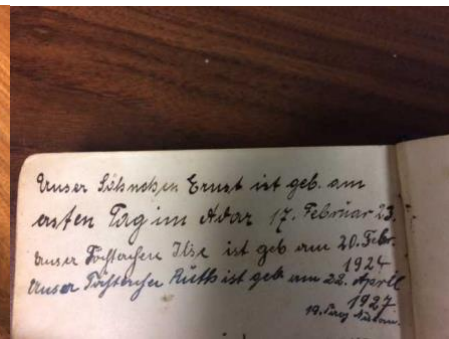 Unser Söhnchen Ernst ist geb. am
ersten Tag im Adar 17. Februar 23.
Unser Töchterchen Ilse ist geb am 20. Febr.
1924
Unser Töchterchen Ruth ist geb am 22. April
1927
19. Tag